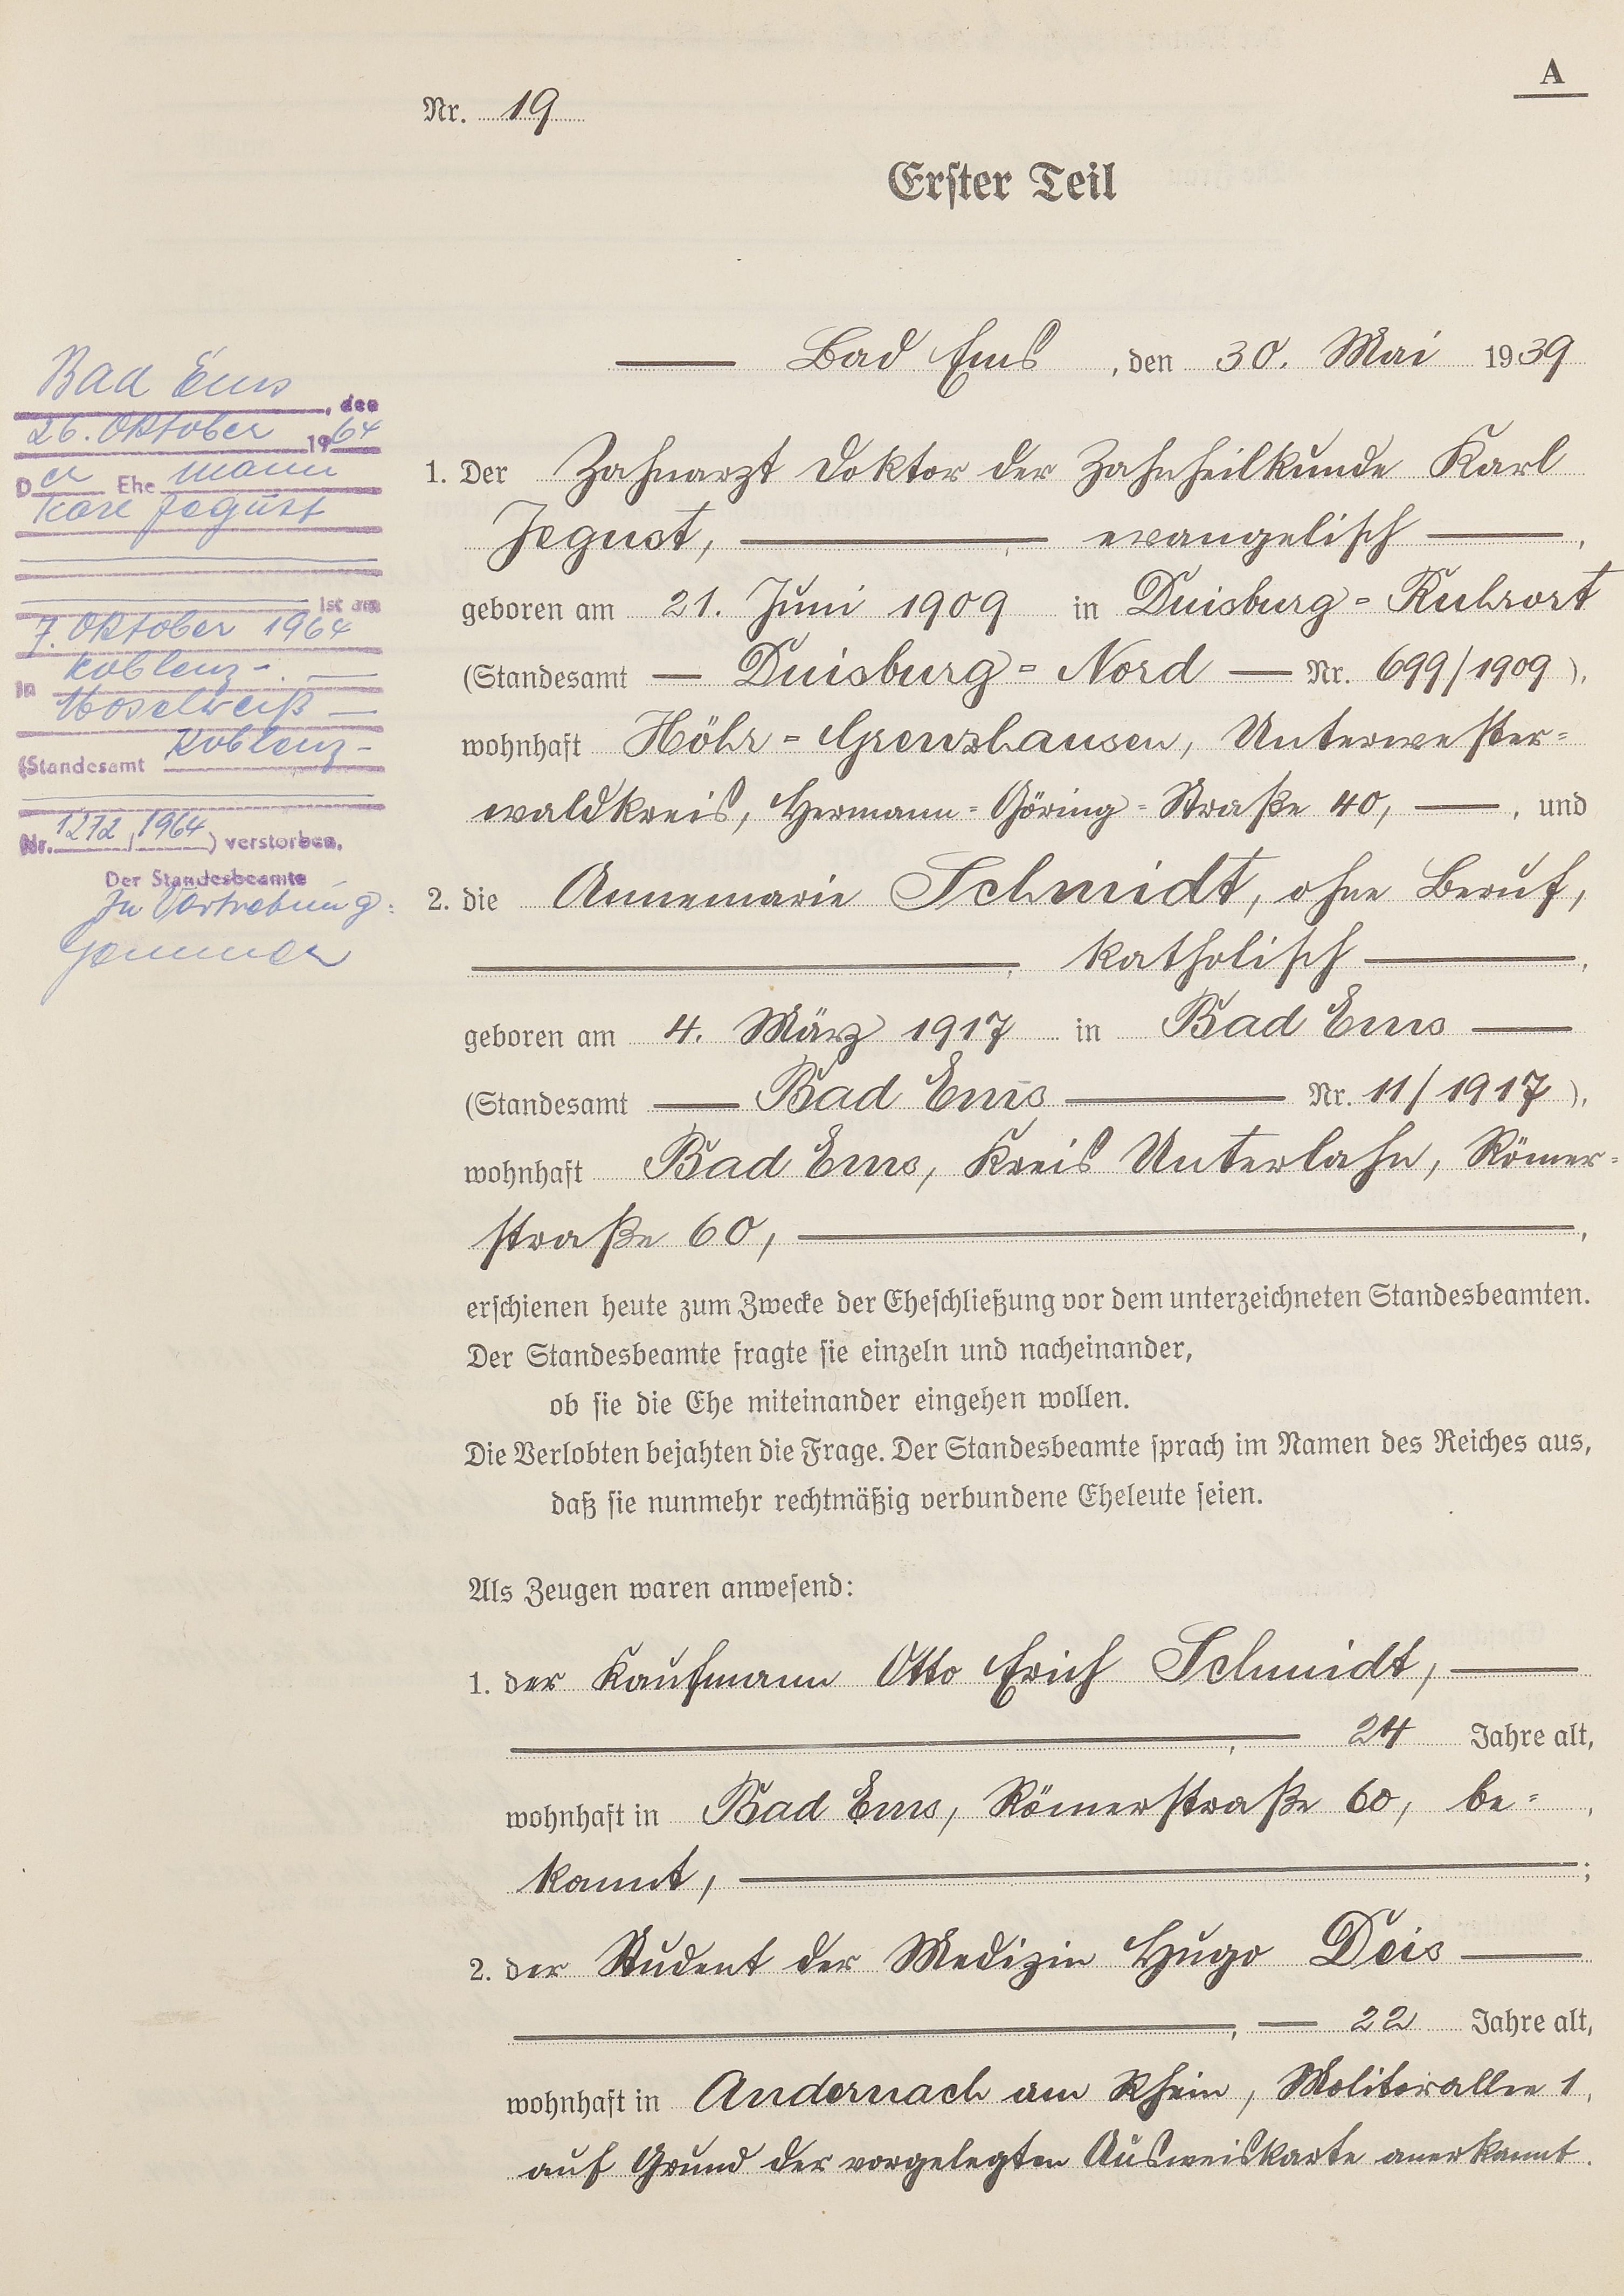 A
Nr. 19
Erster Teil
Bad Ems, den 30. Mai 1939
1. Der Zahnarzt Doktor der Zahnheilkunde Karl
Jegust, evangelisch,
geboren am 21. Juni 1909 in Duisburg-Ruhrort
(Standesamt Duisburg-Nord Nr. 699/1909),
wohnhaft Höhr-Grenzhausen, Unterwester-
waldkreis, Hermann-Göring-Straße 40, , und
2. die Annemarie Schmidt, ohne Beruf,
katholisch,
geboren am 4. März 1917 in Bad Ems
(Standesamt Bad Ems Nr. 11/1917),
wohnhaft Bad Ems, Kreis Unterlahn, Römer-
straße 60,
erschienen heute zum Zwecke der Eheschließung vor dem unterzeichneten Standesbeamten.
Der Standesbeamte fragte sie einzeln und nacheinander,
ob sie die Ehe miteinander eingehen wollen.
Die Verlobten bejahten die Frage. Der Standesbeamte sprach im Namen des Reiches aus,
daß sie nunmehr rechtmäßig verbundene Eheleute seien.
Als Zeugen waren anwesend:
1. der Kaufmann Otto Erich Schmidt,
24 Jahre alt,
wohnhaft in Bad Ems, Römerstraße 60, be-
kannt, ;
2. der Student der Medizin Hugo Deis
22 Jahre alt,
wohnhaft in Andernach am Rhein, Molitorallee 1,
auf Grund der vorgelegten Ausweiskarte anerkannt.
Bad Ems, den
26. Oktober 1964
Der Ehemann
Karl Jegust
ist am
7. Oktober 1964
in Koblenz-
Moselweiß
(Standesamt Koblenz-
Nr. 1272/1964) verstorben.
Der Standesbeamte
In Vertretung: